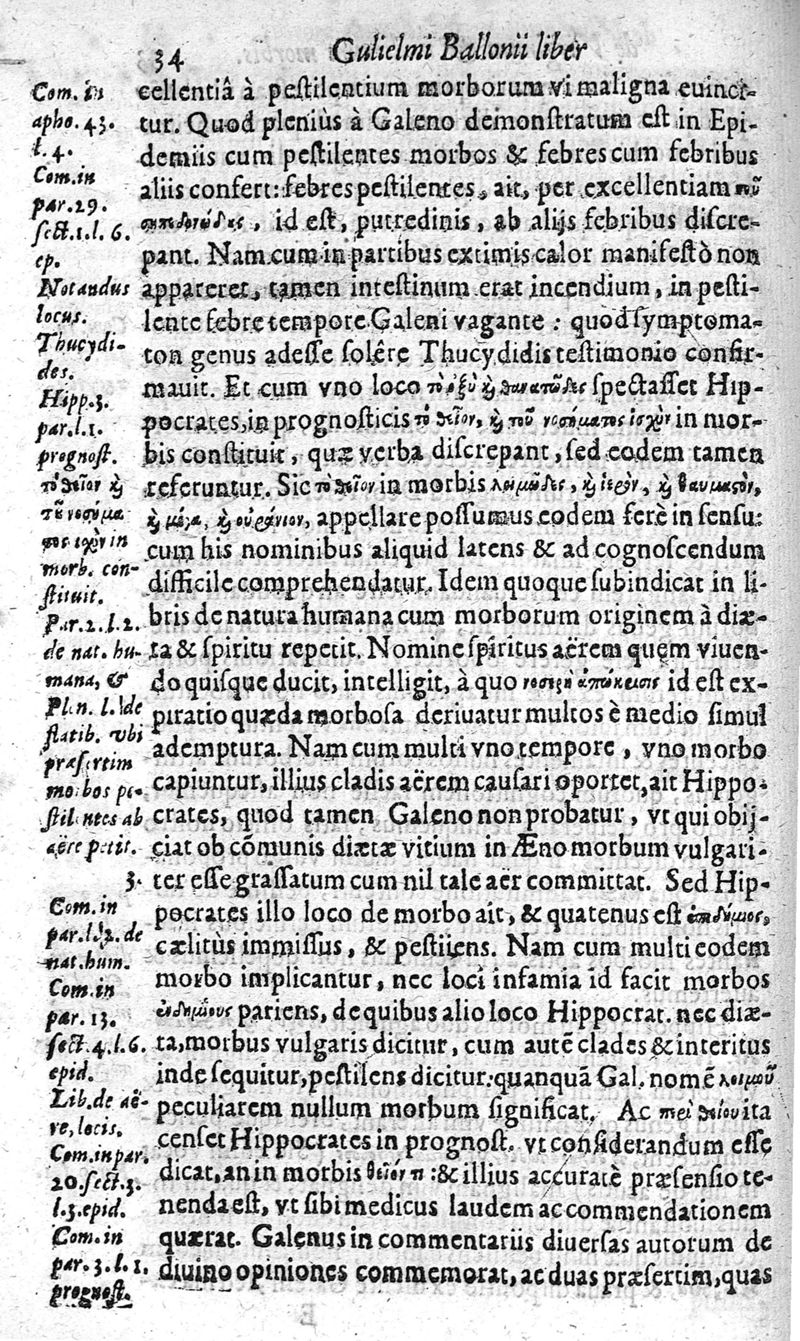 34 Gulielmi Ballonii liber
cellentiâ à pestilentium morborum vi maligna euince-
tur. Quod pleniùs à Galeno demonstratum est in Epi-
demiis cum pestilentes morbos & febres cum febribus
aliis confert: febres pestilentes, ait, per excellentiam τοῦ
σηπεδονώδες, id est, putredinis, ab aliis febribus discre-
pant. Nam cum in partibus extimis calor manifestò non
appareret, tamen intestinum erat incendium, in pesti-
lente febre tempore Galeni vagante: quod symptoma-
ton genus adesse solêre Thucydidis testimonio confir-
mauit. Et cum vno loco τὸ ὀξὺ καὶ θανατῶδες spectasset Hip-
pocrates, in prognosticis τὸ θεῖον, καὶ τοῦ νοσήματος ἰσχὺν in mor-
bis constituit, quæ verba discrepant, sed eodem tamen
referuntur. Sic τὸ θεῖον in morbis λοιμῶδες, καὶ ἱερὸν, καὶ θαυμαστὸν,
καὶ μέγα, καὶ οὐράνιον, appellare possumus eodem ferè in sensu:
cum his nominibus aliquid latens & ad cognoscendum
difficile comprehendatur. Idem quoque subindicat in li-
bris de natura humana cum morborum originem à diæ-
ta & spiritu repetit. Nomine spiritus aërem quem viuen-
do quisque ducit, intelligit, à quo id est ex-
piratio quæda morbosa deriuatur multos è medio simul
ademptura. Nam cum multi vno tempore, vno morbo
capiuntur, illius cladis aërem causari oportet, ait Hippo-
crates, quod tamen Galeno non probatur, vt qui obij-
ciat ob cõmunis diætæ vitium in Æno morbum vulgari-
ter esse grassatum cum nil tale aër committat. Sed Hip-
pocrates illo loco de morbo ait, & quatenus est ἐπιδήμιος,
cælitùs immissus, & pestilens. Nam cum multi eodem
morbo implicantur, nec loci infamia id facit morbos
ἐνδημίους pariens, de quibus alio loco Hippocrat. nec diæ-
ta, morbus vulgaris dicitur, cum autẽ clades & interitus
inde sequitur, pestilens dicitur: quanquã Gal. nomẽ λοιμοῦ
peculiarem nullum morbum significat. Ac περὶ θείου ita
censet Hippocrates in prognost. vt considerandum esse
dicat, an in morbis θεῖόν τι: & illius accuratè præsensio te-
nenda est, vt sibi medicus laudem ac commendationem
quærat. Galenus in commentariis diuersas autorum de
diuino opiniones commemorat, ac duas præsertim, quas
Com. in
apho. 43.
l. 4.
Com. in
par. 29.
sect. 1. l. 6.
ep.
Notandus
locus.
Thucydi-
des.
Hipp. 3.
par. l. 1.
prognost.
τὸ θεῖον καὶ
τοῦ νοσήμα-
τος ἰσχὺν in
morb. con-
stituit.
Par. 2. l. 2.
de nat. hu-
mana, &
l. de
flatib. vbi
præsertim
morbos pe-
stilentes ab
aëre petit.
3.
Com. in
par. l. 2. de
nat. hum.
Com. in
par. 13.
sect. 4. l. 6.
epid.
Lib. de aë-
re, locis.
Com. in par.
20. sect. 3.
l. 3. epid.
Com. in
par. 3. l. 1.
prognost.